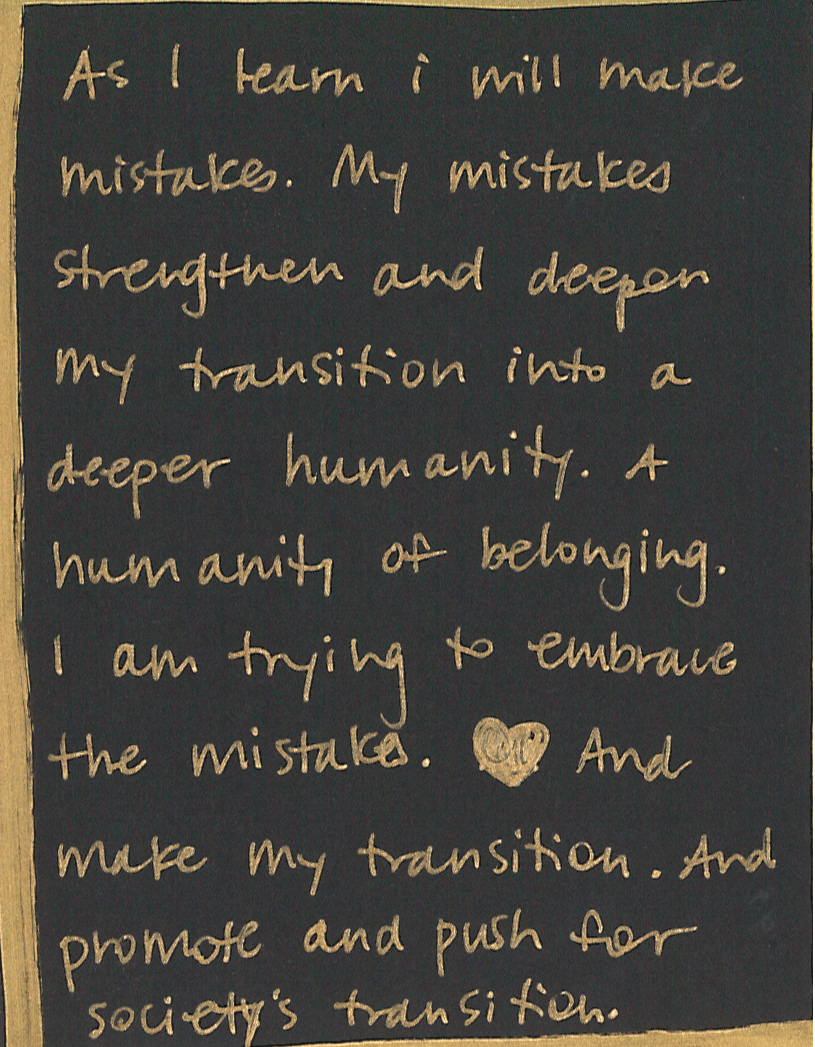 As I learn i will make
mistakes. My mistakes
strengthen and deepen
my transition into a
deeper humanity. A
humanity of belonging.
I am trying to embrace
the mistakes. And
make my transition. And
promote and push for
society's transition.